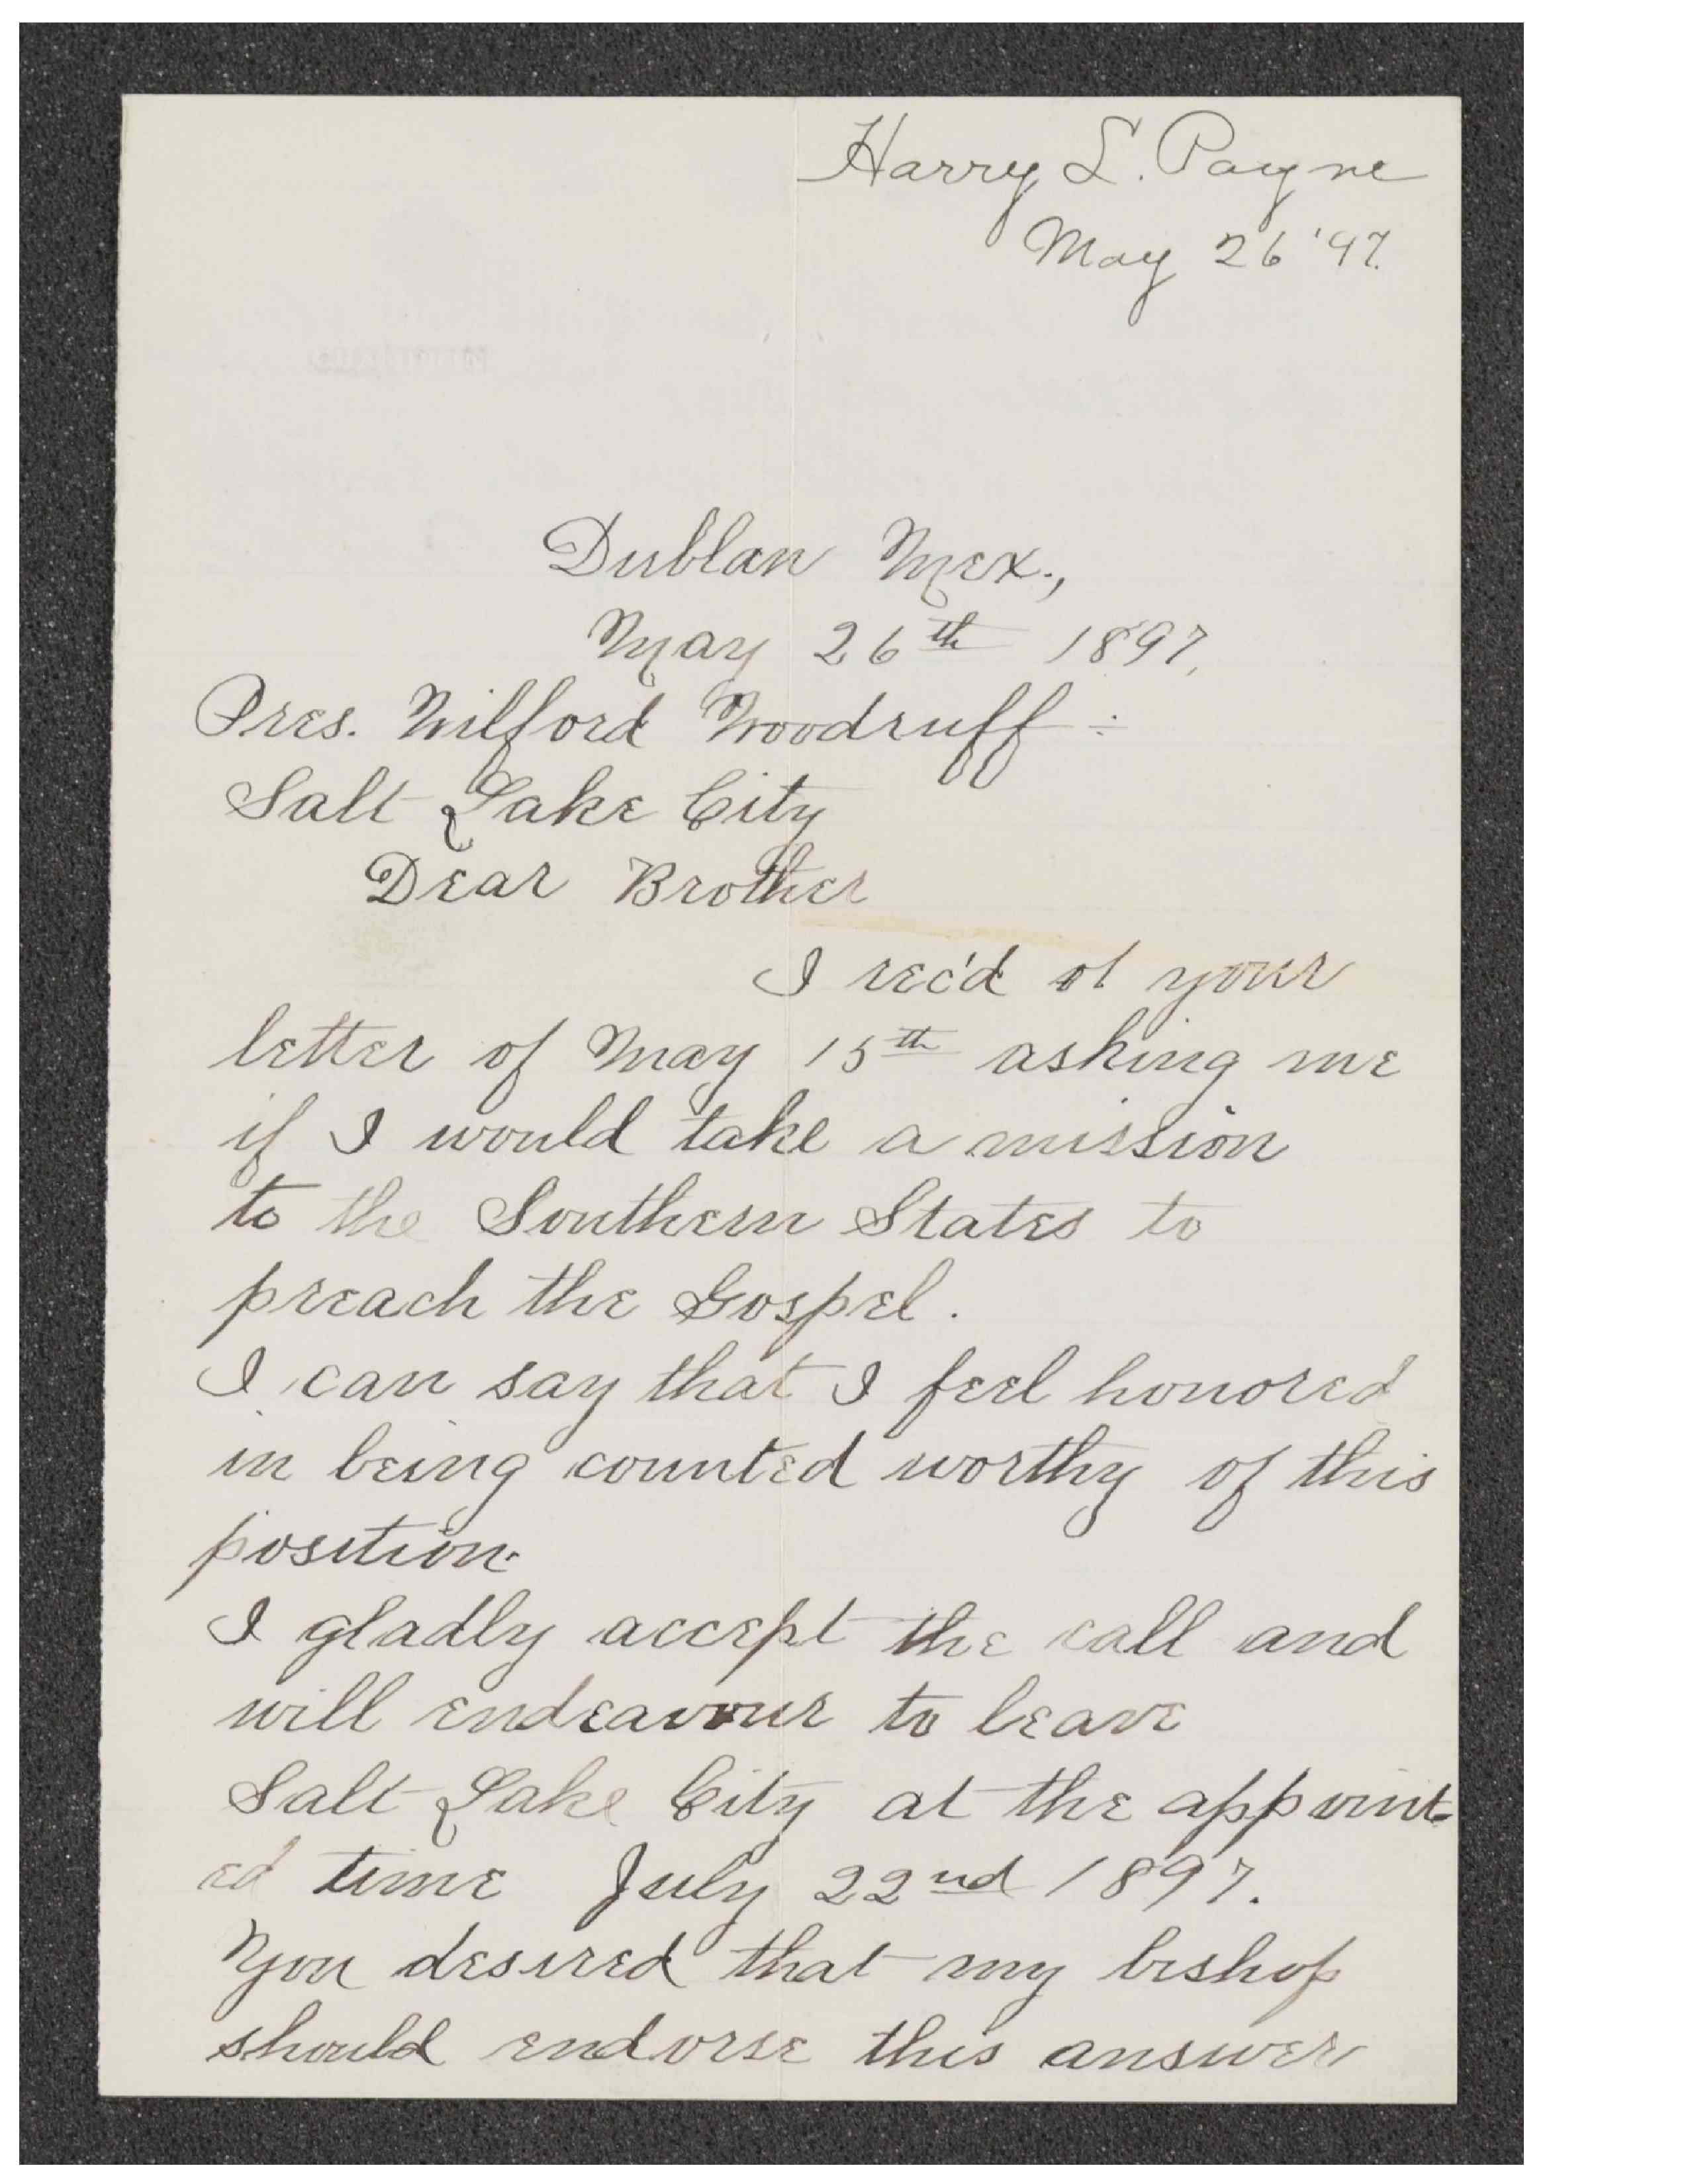 Harry L. Payne
May 26 '97.
Dublan Mex.,
May 26th 1897.
Pres. Wilford Woodruff :
Salt Lake City
Dear Brother
I rec'd of your
letter of May 15th asking me
if I would take a mission
to the Southern States to
preach the Gospel.
I can say that I feel honored
in being counted worthy of this
position.
I gladly accept the call and
will endeavour to leave
Salt Lake City at the appoint-
ed time July 22nd 1897.
You desired that my bishop
should endorse this answer